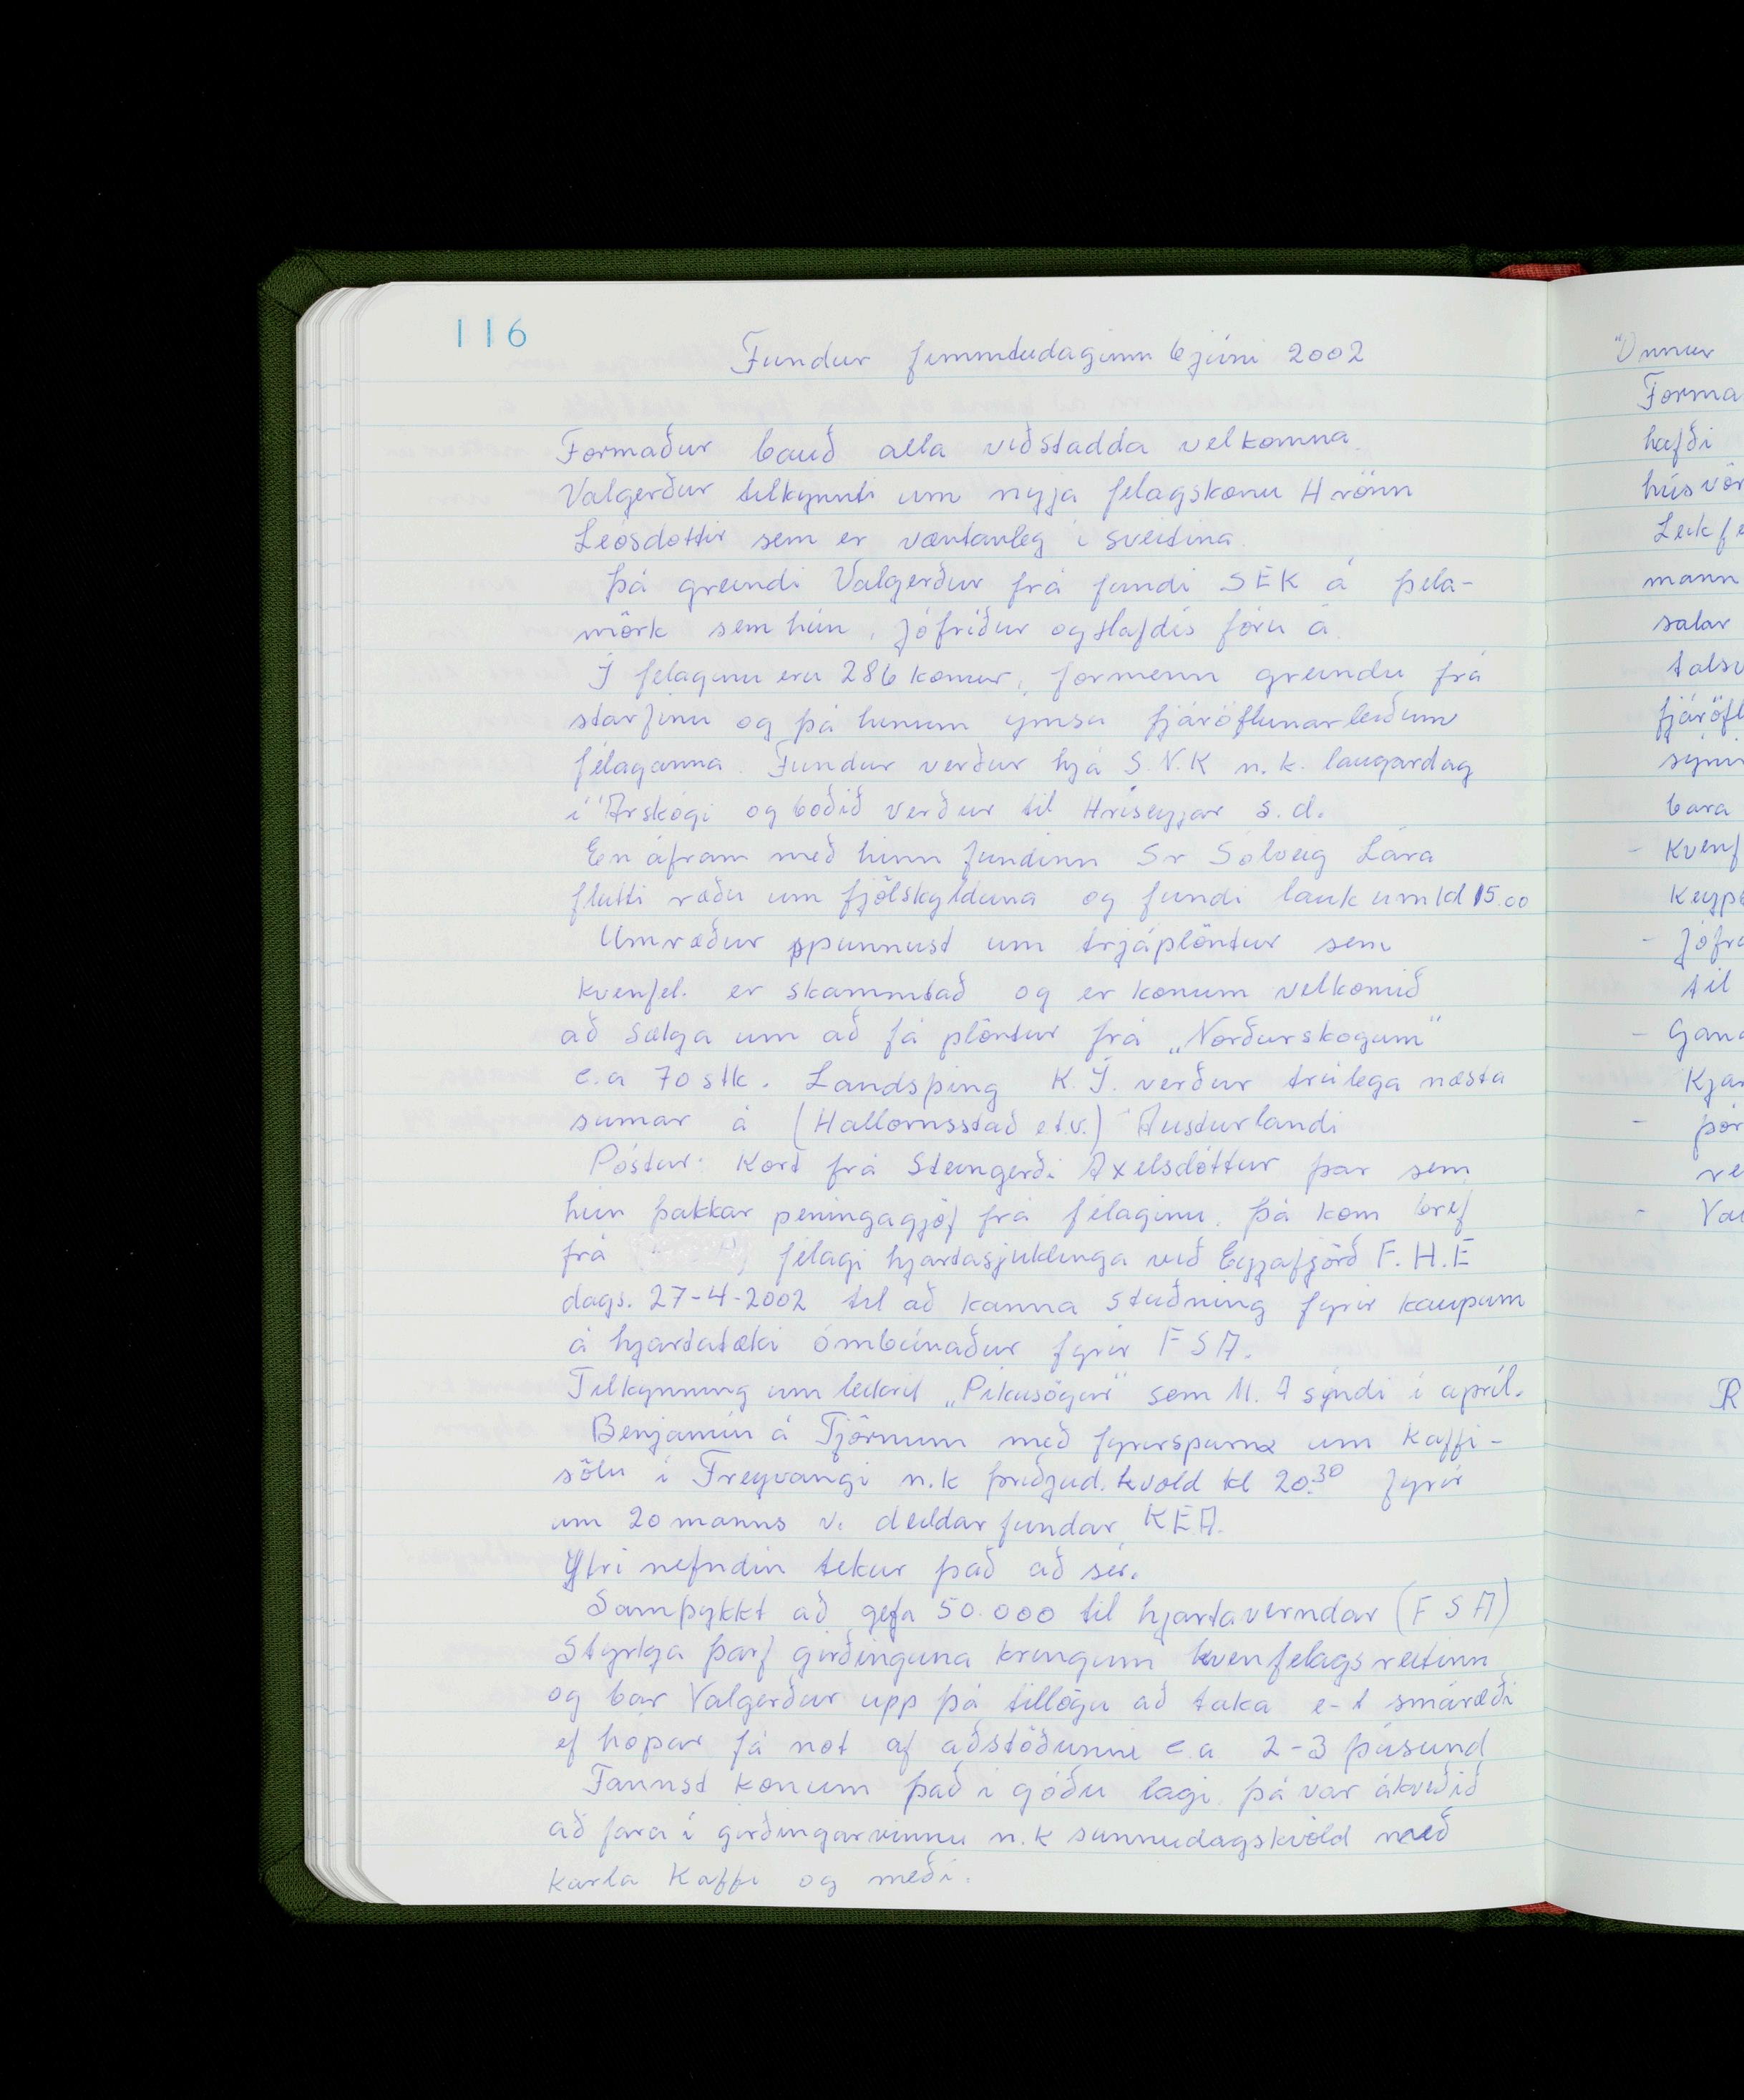 116
Fundur fimmtudaginn 6 júni 2002
Formaður bauð alla viðstadda velkomna.
Valgerður tilkynnti um nyja felagskonu Hrönn
Leósdottir sem er væntanleg i sveitina.
Þá greindi Valgerður frá fundi SEK á þela-
mörk sem hún, Jófríður og Hafdís fóru á.
Í felaginu eru 286 konur, formenn greindu frá
starfinu og þá hinum ymsu fjáröflunarleiðum
félaganna. Fundur verður hjá S.N.K n.k. laugardag
i Árskógi og boðið verður til Hríseyjar s.d.
En áfram með hinn fundinn Sr Sólveig Lára
flutti ræðu um fjölskylduna og fundi lauk um kl 15.00
Umræður spunnust um trjáplöntur sem
kvenfel. er skammtað og er konum velkomið
að sælga um að fá plöntur frá „Norðurskogum"
c.a 70 stk. Landsþing K.Í. verður trúlega næsta
sumar á (Hallornsstað e.t.v.) Austurlandi
Póstur: Kort frá Steingerði Axelsdóttur þar sem
hún þakkar peningagjöf frá félaginu. þá kom bref
frá félagi hjartasjúklinga við Eyjafjörð F.H.E
dags. 27-4-2002 til að kanna stuðning fyrir kaupum
á hjartatæki ómbúnaður fyrir FSA.
Tilkynning um leikrit „Píkusögur" sem M.A sýndi i apríl.
Benjamín á Tjörnum með fyrirspurn um kaffi-
sölu i Freyvangi n.k þriðjud. kvöld kl 20.30 fyrir
um 20 manns v. deildarfundar KEA.
Ytri nefndin tekur það að sér.
Samþykkt að gefa 50.000 til hjartaverndar (FSA)
Styrkja þarf girðinguna kringum kvenfelagsreitinn
og bar Valgerður upp þá tillögu að taka e-t smáræði
ef hópar fá not af aðstöðunni c.a 2-3 þúsund
Fannst konum það i góðu lagi. þá var ákveðið
að fara i girðingarvinnu n.k sunnudagskvöld með
karla kaffi og meði.
"Önnur
Forma
hafði
húsvör
Leikfe
mann
salar
talsv
fjáröfl
sýni
bara
- Kvenf
keyp
- Jófrí
til
- Gand
Kjar
- þór
re
- Val
R